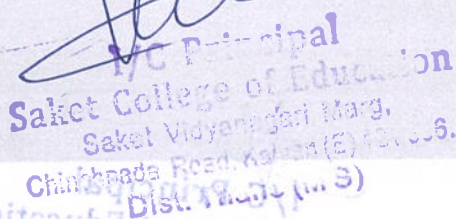 I/C Principal
Saket College of Education
Saket Vidyanagari Marg,
Chinchpada Road, Kalyan (E)
Dist. Thane (M S)